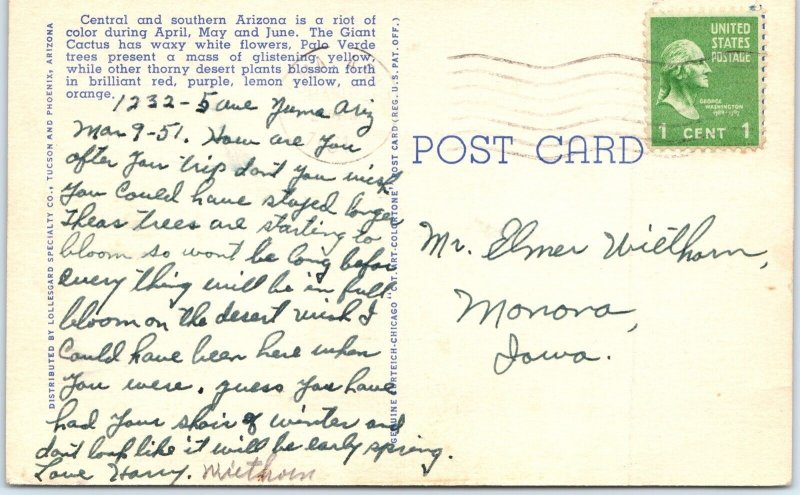 Central and southern Arizona is a riot of
color during April, May and June. The Giant
Cactus has waxy white flowers, Palo Verde
trees present a mass of glistening yellow,
while other thorny desert plants blossom forth
in brilliant red, purple, lemon yellow, and
orange.
1232-5 ave Yuma Ariz
Mar 9-51. How are you
after you trip dont you wish
you could have stayed longer
theas trees are starting to
bloom so wont be long before
every thing will be in full
bloom on the desert wish I
could have been here when
you were. guess you have
had your shair of winter and
dont look like it will be early spring.
Love Harry. Wiethorn
DISTRIBUTED BY LOLLESGARD SPECIALTY CO., TUCSON AND PHOENIX, ARIZONA
GENUINE CURTEICH-CHICAGO "C.T. ART-COLORTONE" POST CARD (REG. U.S. PAT. OFF.)
POST CARD
UNITED
STATES
POSTAGE
GEORGE
WASHINGTON
1789-1797
1 CENT 1
Mr. Elmer Wiethorn,
Monona,
Iowa.